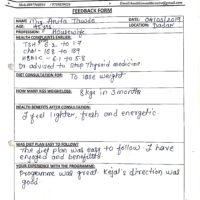 FEEDBACK FORM
NAME: Mrs. Anita Thaode DATE: 04/05/2019
AGE: 42yrs LOCATION: Dadar
PROFESSION: Housewife
HEALTH COMPLAINTS EARLIER:
TSH 8.2 to 1.7
chol - 188 to 189
HBA1C - 6.1 to 5.8
Dr advised to stop Thyroid medicine
DIET CONSULTATION FOR: To lose weight
HOW MANY KGS WEIGHTLOSS: 8kgs in 3 months
HEALTH BENEFITS AFTER CONSULTATION:
I feel lighter, fresh and energetic.
WAS DIET PLAN EASY TO FOLLOW?
The diet plan was easy to follow I have
enjoyed and benefitted.
YOUR EXPERIENCE WITH THE PROGRAMME:
Programme was great Kejal's direction was
good